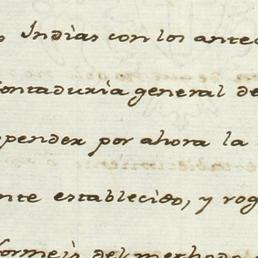 , Indias con los antec
ontaduria general de
spender por ahora la
nte establecido, y rog
formeis del methodo